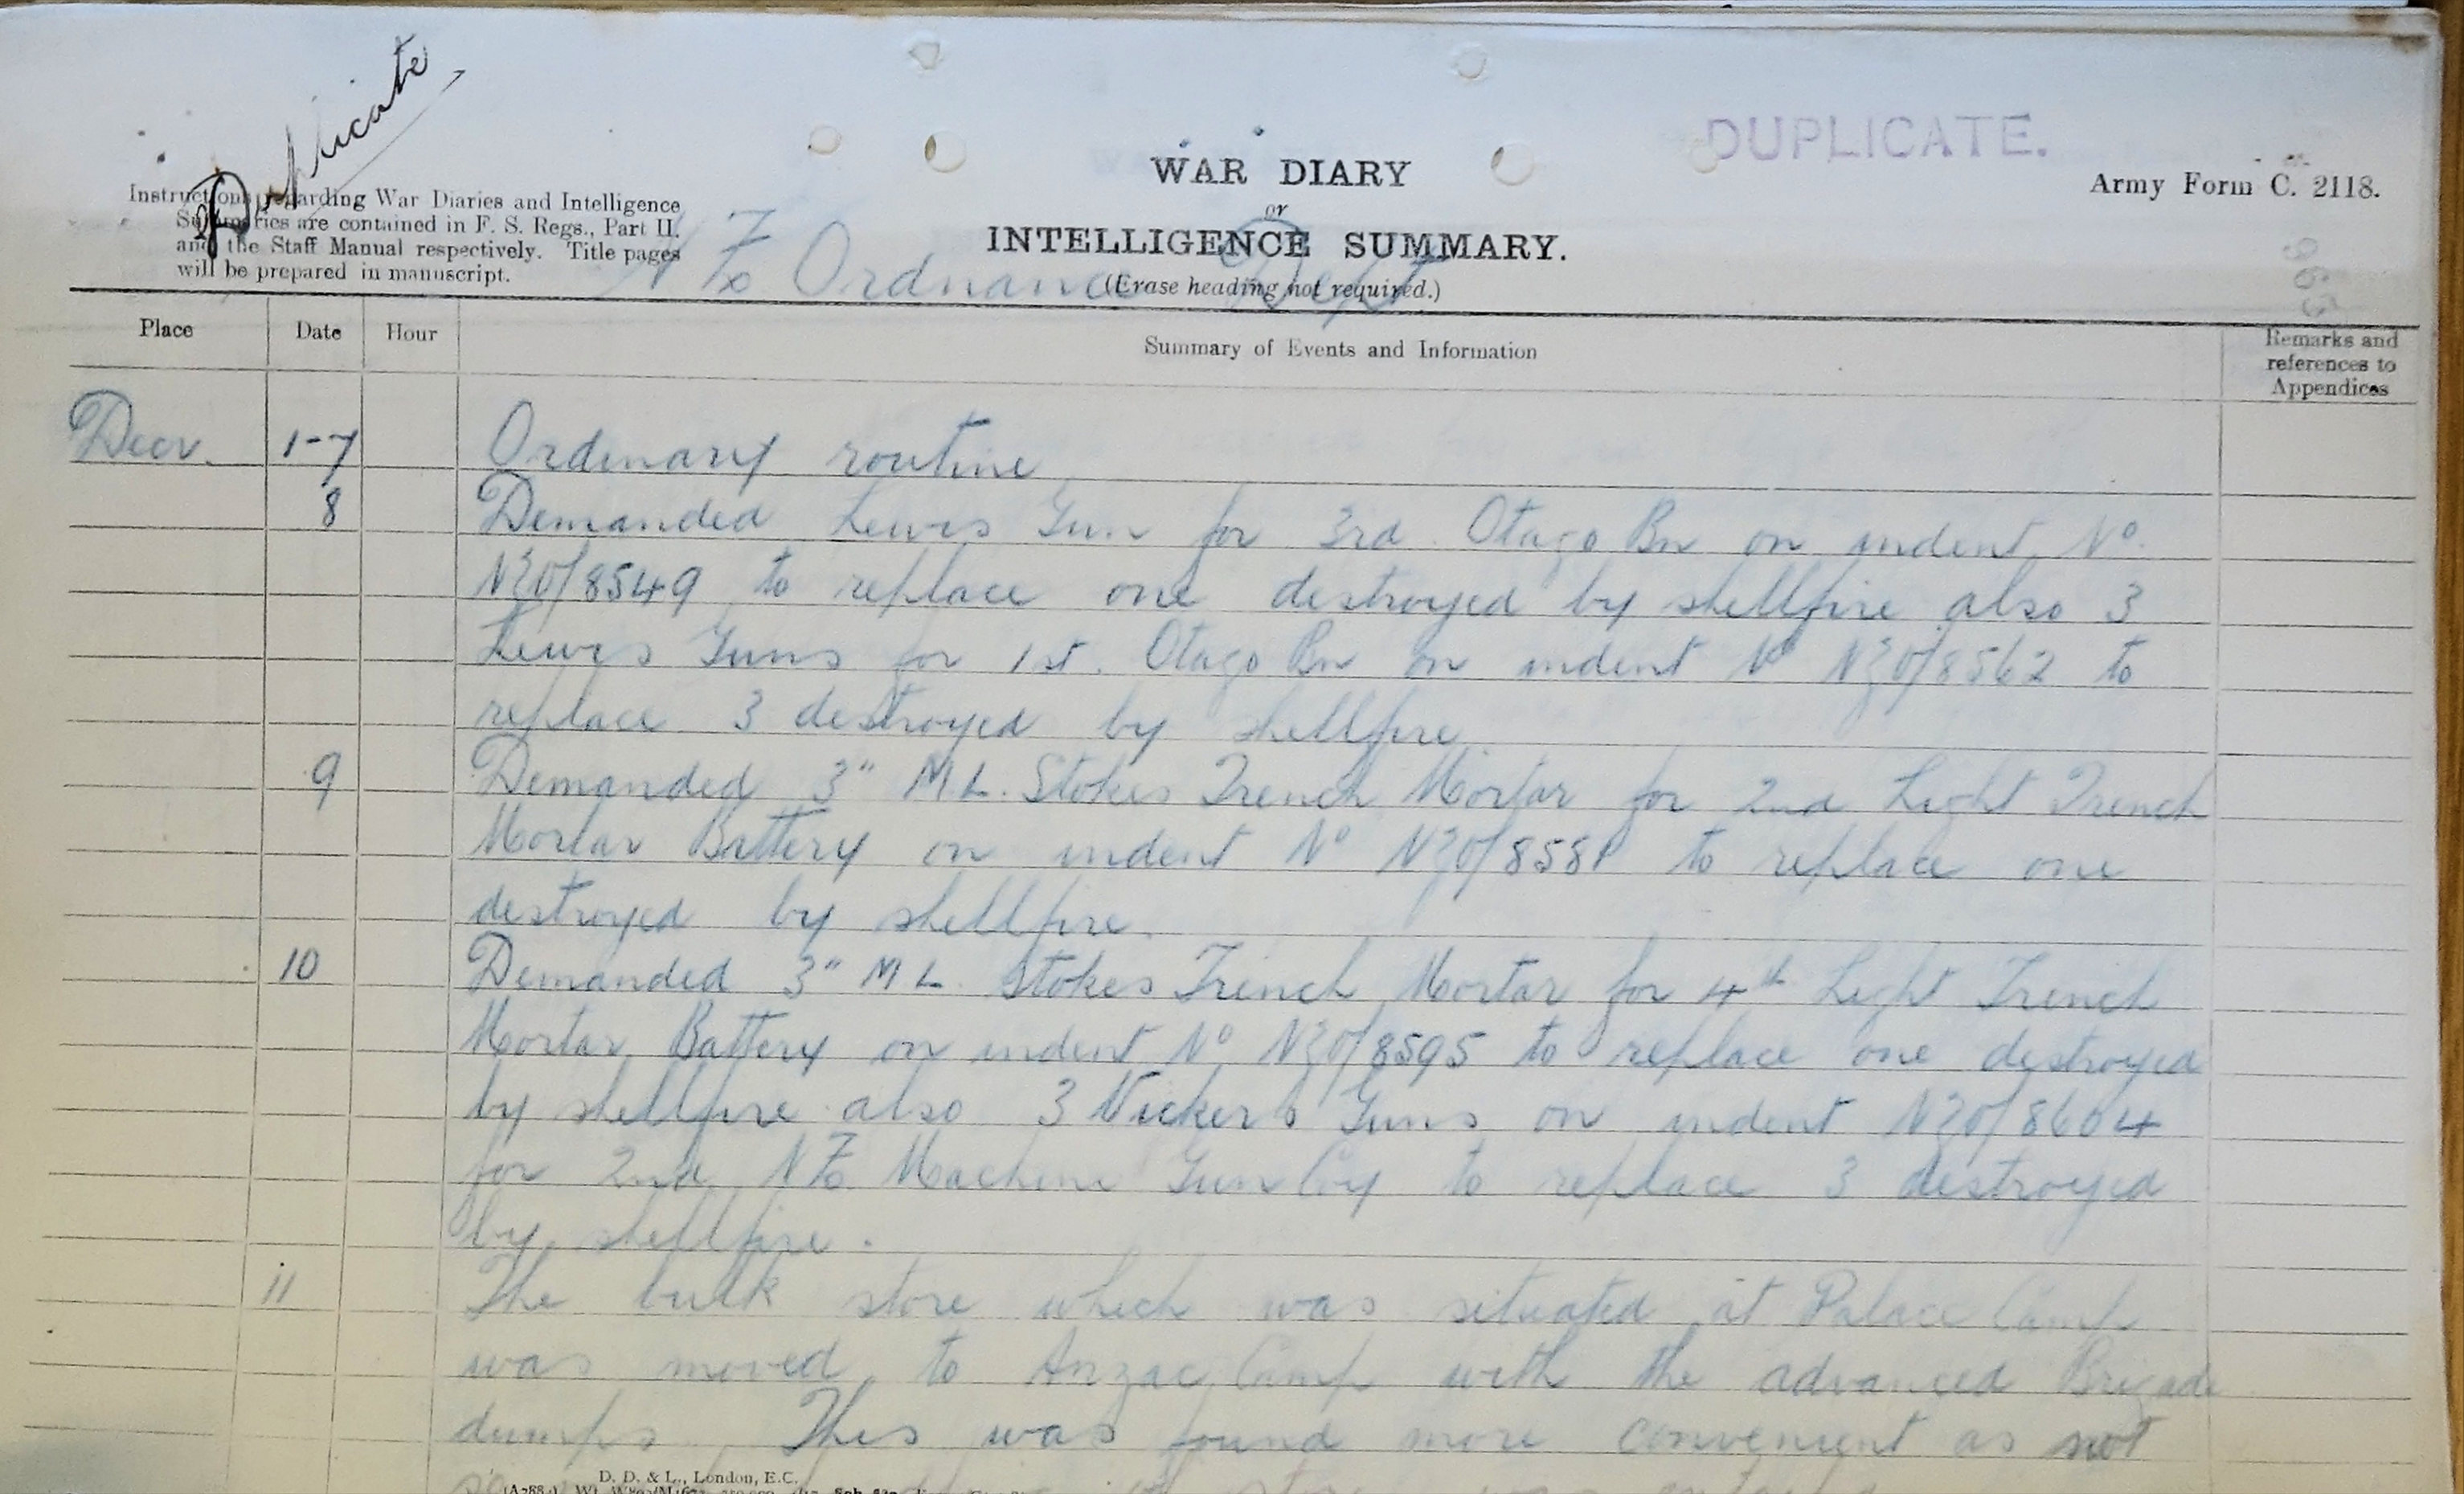 Duplicate
DUPLICATE.
WAR DIARY
or
INTELLIGENCE SUMMARY.
(Erase heading not required.)
Army Form C. 2118.
Instructions regarding War Diaries and Intelligence
Summaries are contained in F. S. Regs., Part II.
and the Staff Manual respectively. Title pages
will be prepared in manuscript.
NZ Ordnance Dept
Place Date Hour Summary of Events and Information Remarks and
references to
Appendices
Decr. 1-7 Ordinary routine
8 Demanded Lewis Gun for 3rd Otago Bn on indent No
NZO/8549 to replace one destroyed by shellfire also 3
Lewis Guns for 1st. Otago Bn on indent No NZO/8562 to
replace 3 destroyed by shellfire.
9 Demanded 3" M L. Stokes Trench Mortar for 2nd Light Trench
Mortar Battery on indent No to replace one
destroyed by shellfire.
10 Demanded 3" M L. Stokes Trench Mortar for 4th Light Trench
Mortar Battery on indent No NZO/8595 to replace one destroyed
by shellfire also 3 Vickers Guns on indent NZO/8604
for 2nd NZ Machine Gun Coy to replace 3 destroyed
by shellfire.
11 The bulk store which was situated at Palace Camp
was moved to Anzac Camp with the advanced Brigade
dumps. This was found more convenient as not
D. D. & L., London, E.C.